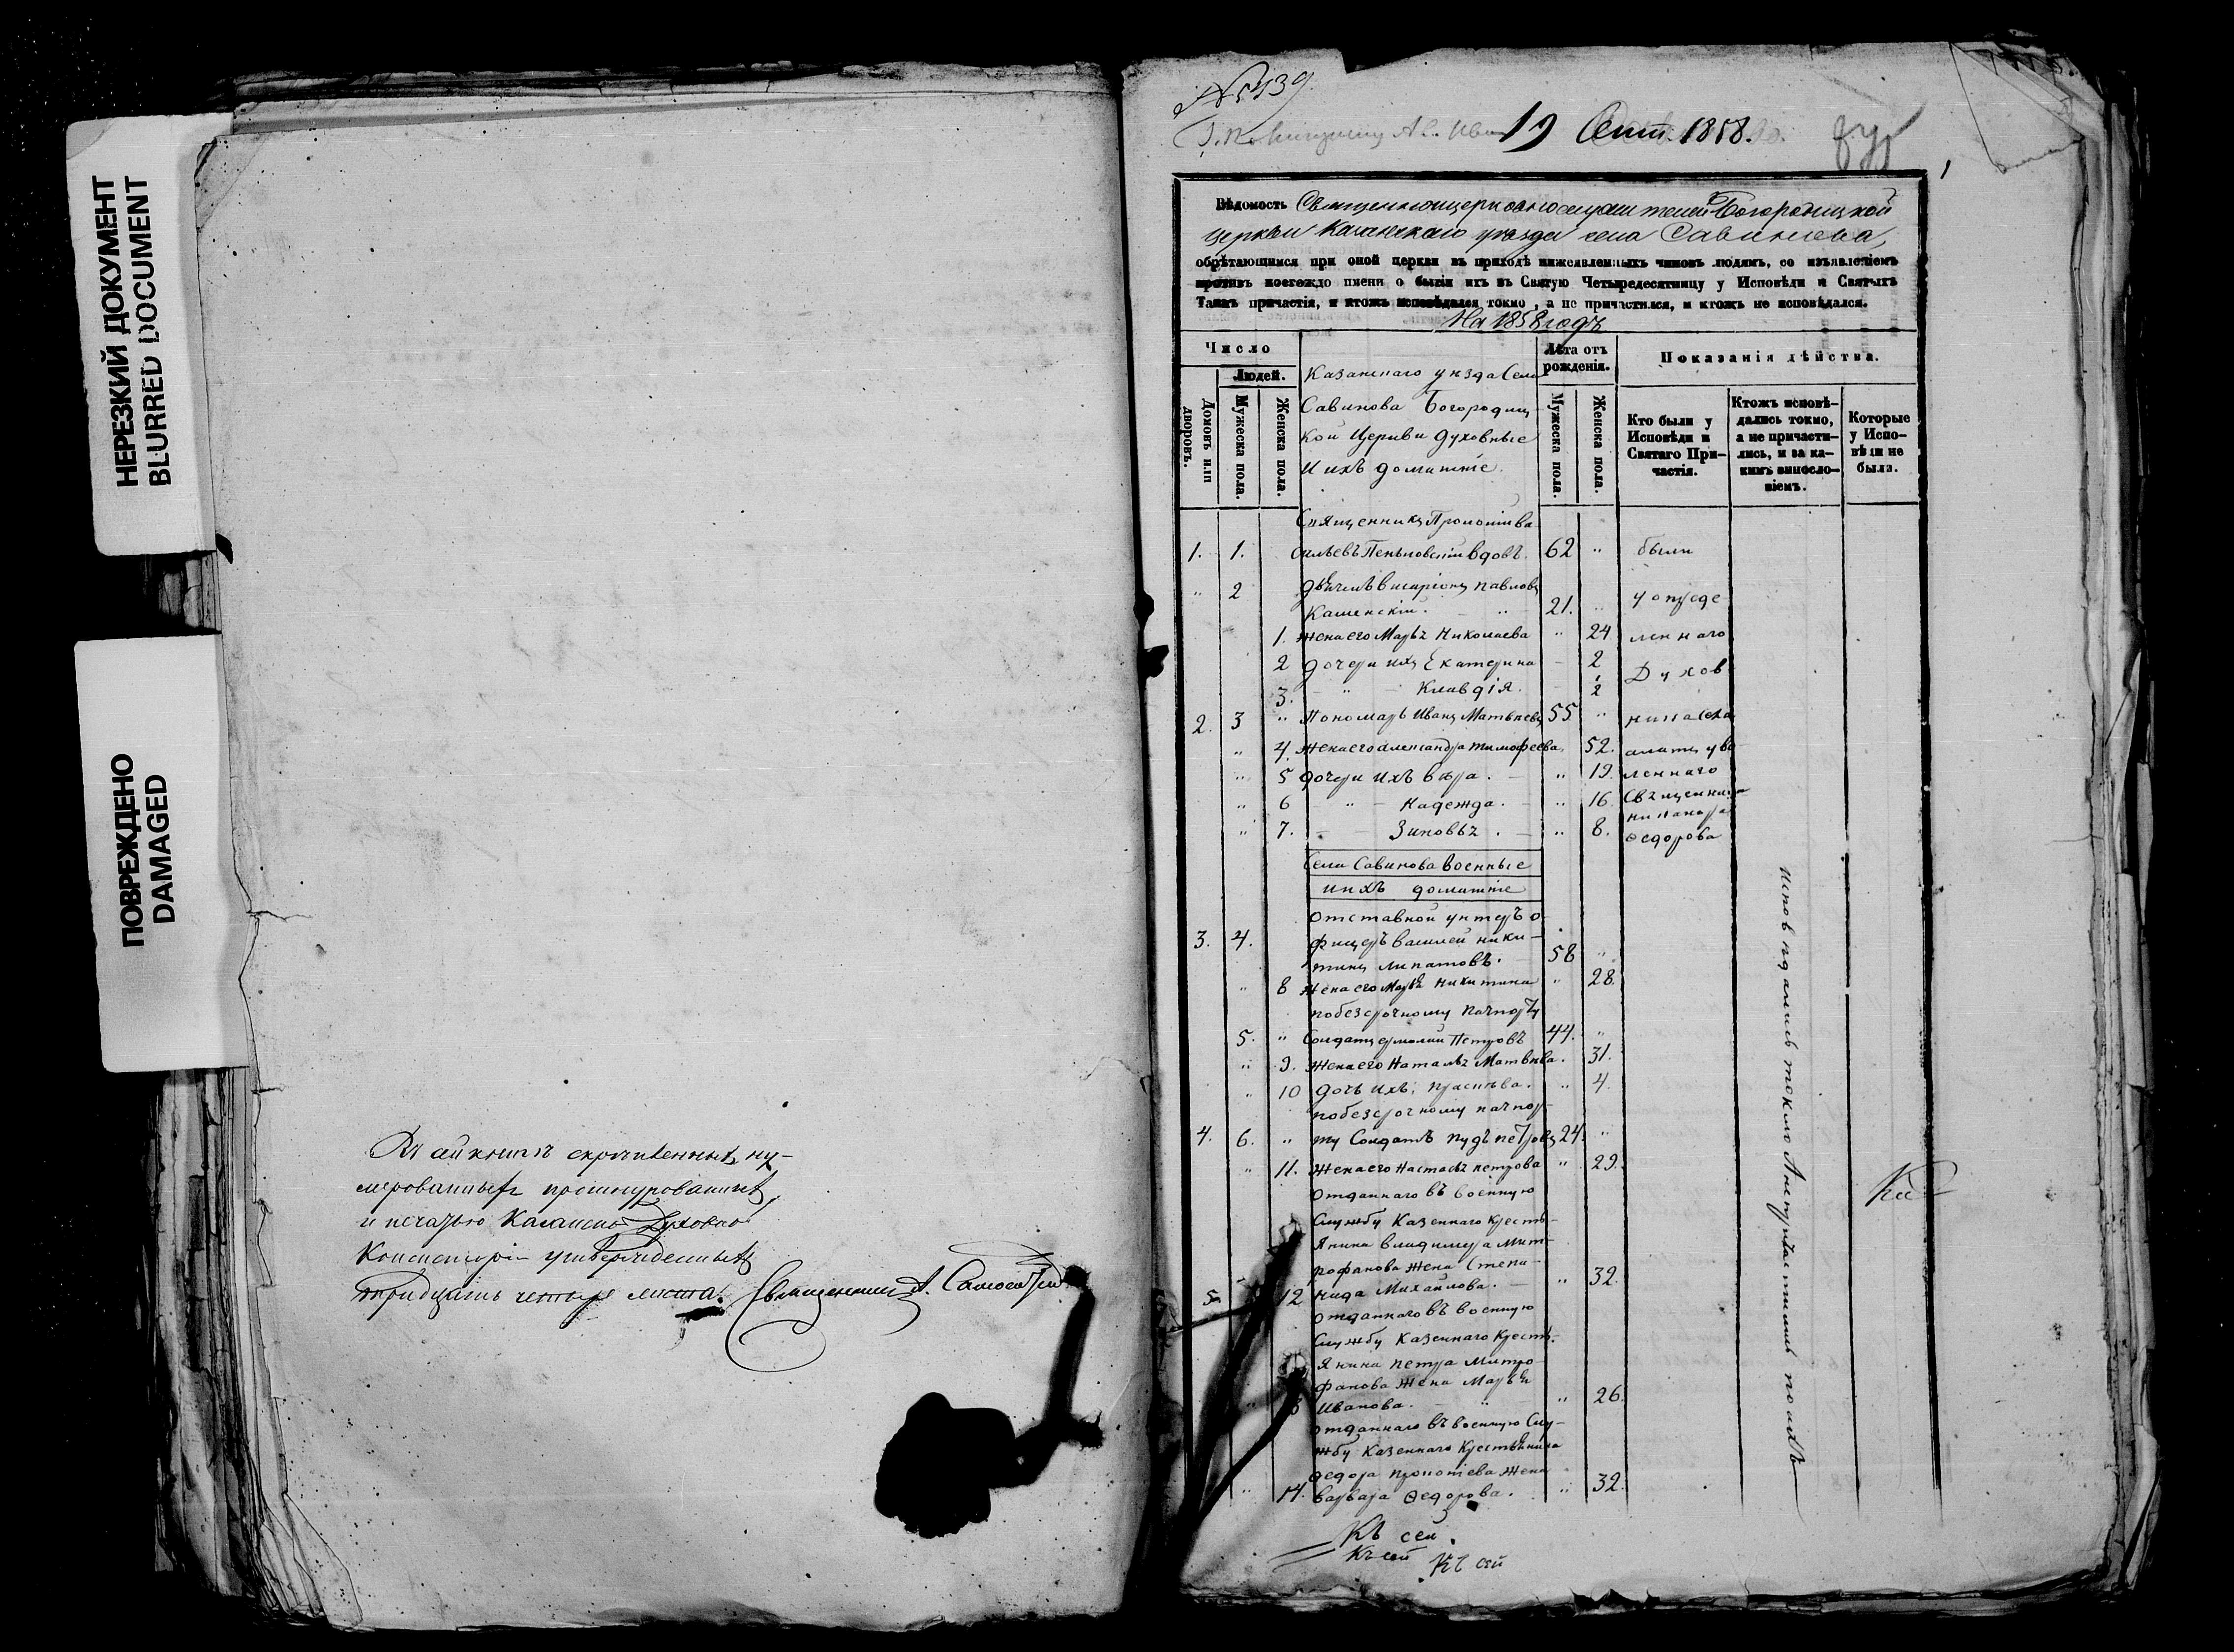 НЕРЕЗКИЙ ДОКУМЕНТ
BLURRED DOCUMENT
ПОВРЕЖДЕНО
DAMAGED
скрепленныхъ ну-
мерованныхъ прошнурованныхъ
и печатью Казанской Духовной
Консисторіи утвержденныхъ
тридцать четыре листа. Священникъ А.
№ 5439
19 Сент. 1858.
1
Вѣдомость Священноцерковнослужителей Богородицкой
церкви Казанскаго уѣзда села Савинова,
обрѣтающимся при оной церкви въ приходѣ нижеявленныхъ чиновъ людямъ, со изъявленіемъ
противъ коегождо имени о бытіи ихъ въ Святую Четыредесятницу у Исповѣди и Святыхъ
Таинъ причастія, и ктожъ исповѣдался токмо, а не причастился, и ктожъ не исповѣдался.
На 1858 годъ
Число
Людей.
Домовъ или дворовъ.
Мужеска пола.
Женска пола.
Казанскаго уѣзда Села
Савинова Богородиц-
кой Церкви духовные
и ихъ домашніе.
Лѣта отъ рожденія.
Мужеска пола.
Женска пола.
Показанія дѣйства.
Кто были у Исповѣди и Святаго При-частія.
Ктожъ исповѣ-дались токмо, а не причасти-лись, и за ка-кимъ виносло-віемъ.
Которые у Испо-вѣди не были.
Священникъ Прокопій Ва
1. 1. сильевъ Пеньковскій вдовъ. 62 " были
" 2 Павловъ
Каменскій. " 21. " у опреде
1. жена его Марья Николаева " 24 леннаго
2 дочери ихъ Екатерина 2 Духов
3. " Клавдія. ½
2. 3 " Пономарь Иванъ Матвѣевъ 55 "
" 4. жена его Александра Тимофеева 52.
" 5 дочери ихъ Вѣра. " 19. леннаго
" 6 " Надежда. " 16 Священника
" 7. Зиновья. " 8. Никанора
Ѳедорова
Села Савинова военные
и ихъ домашніе
Отставной унтеръ о-
3. 4. фицеръ Василей Ники-
тинъ Липатовъ. 58 "
" 8 жена его Марья Никитина " 28.
по безсрочному пачпорту
5. " Солдатъ Ермолай Петровъ 44. "
" 9. жена его Наталья Матвѣева. 31.
" 10 дочь ихъ " 4.
по безсрочному пачпор-
4. 6. " ту Солдатъ Пудъ Петровъ 24. "
" 11. жена его Настасья Петрова " 29.
Отданнаго въ военную
Службу Казеннаго Кресть-
янина Владимера Мит-
рофанова жена Степа-
5. 12 нида Михайлова. " 32.
Отданнаго въ военную
Службу Казеннаго Кресть-
янина Петра Митро
фанова жена Марья
" Иванова. " 26.
Отданнаго въ военную Слу-
жбу Казеннаго Крестьянина
Ѳедора Прокопіева жена
" 14. Варвара Ѳедорова. " 32.
исповѣдались токмо
Къ сей
Къ сей
Къ сей